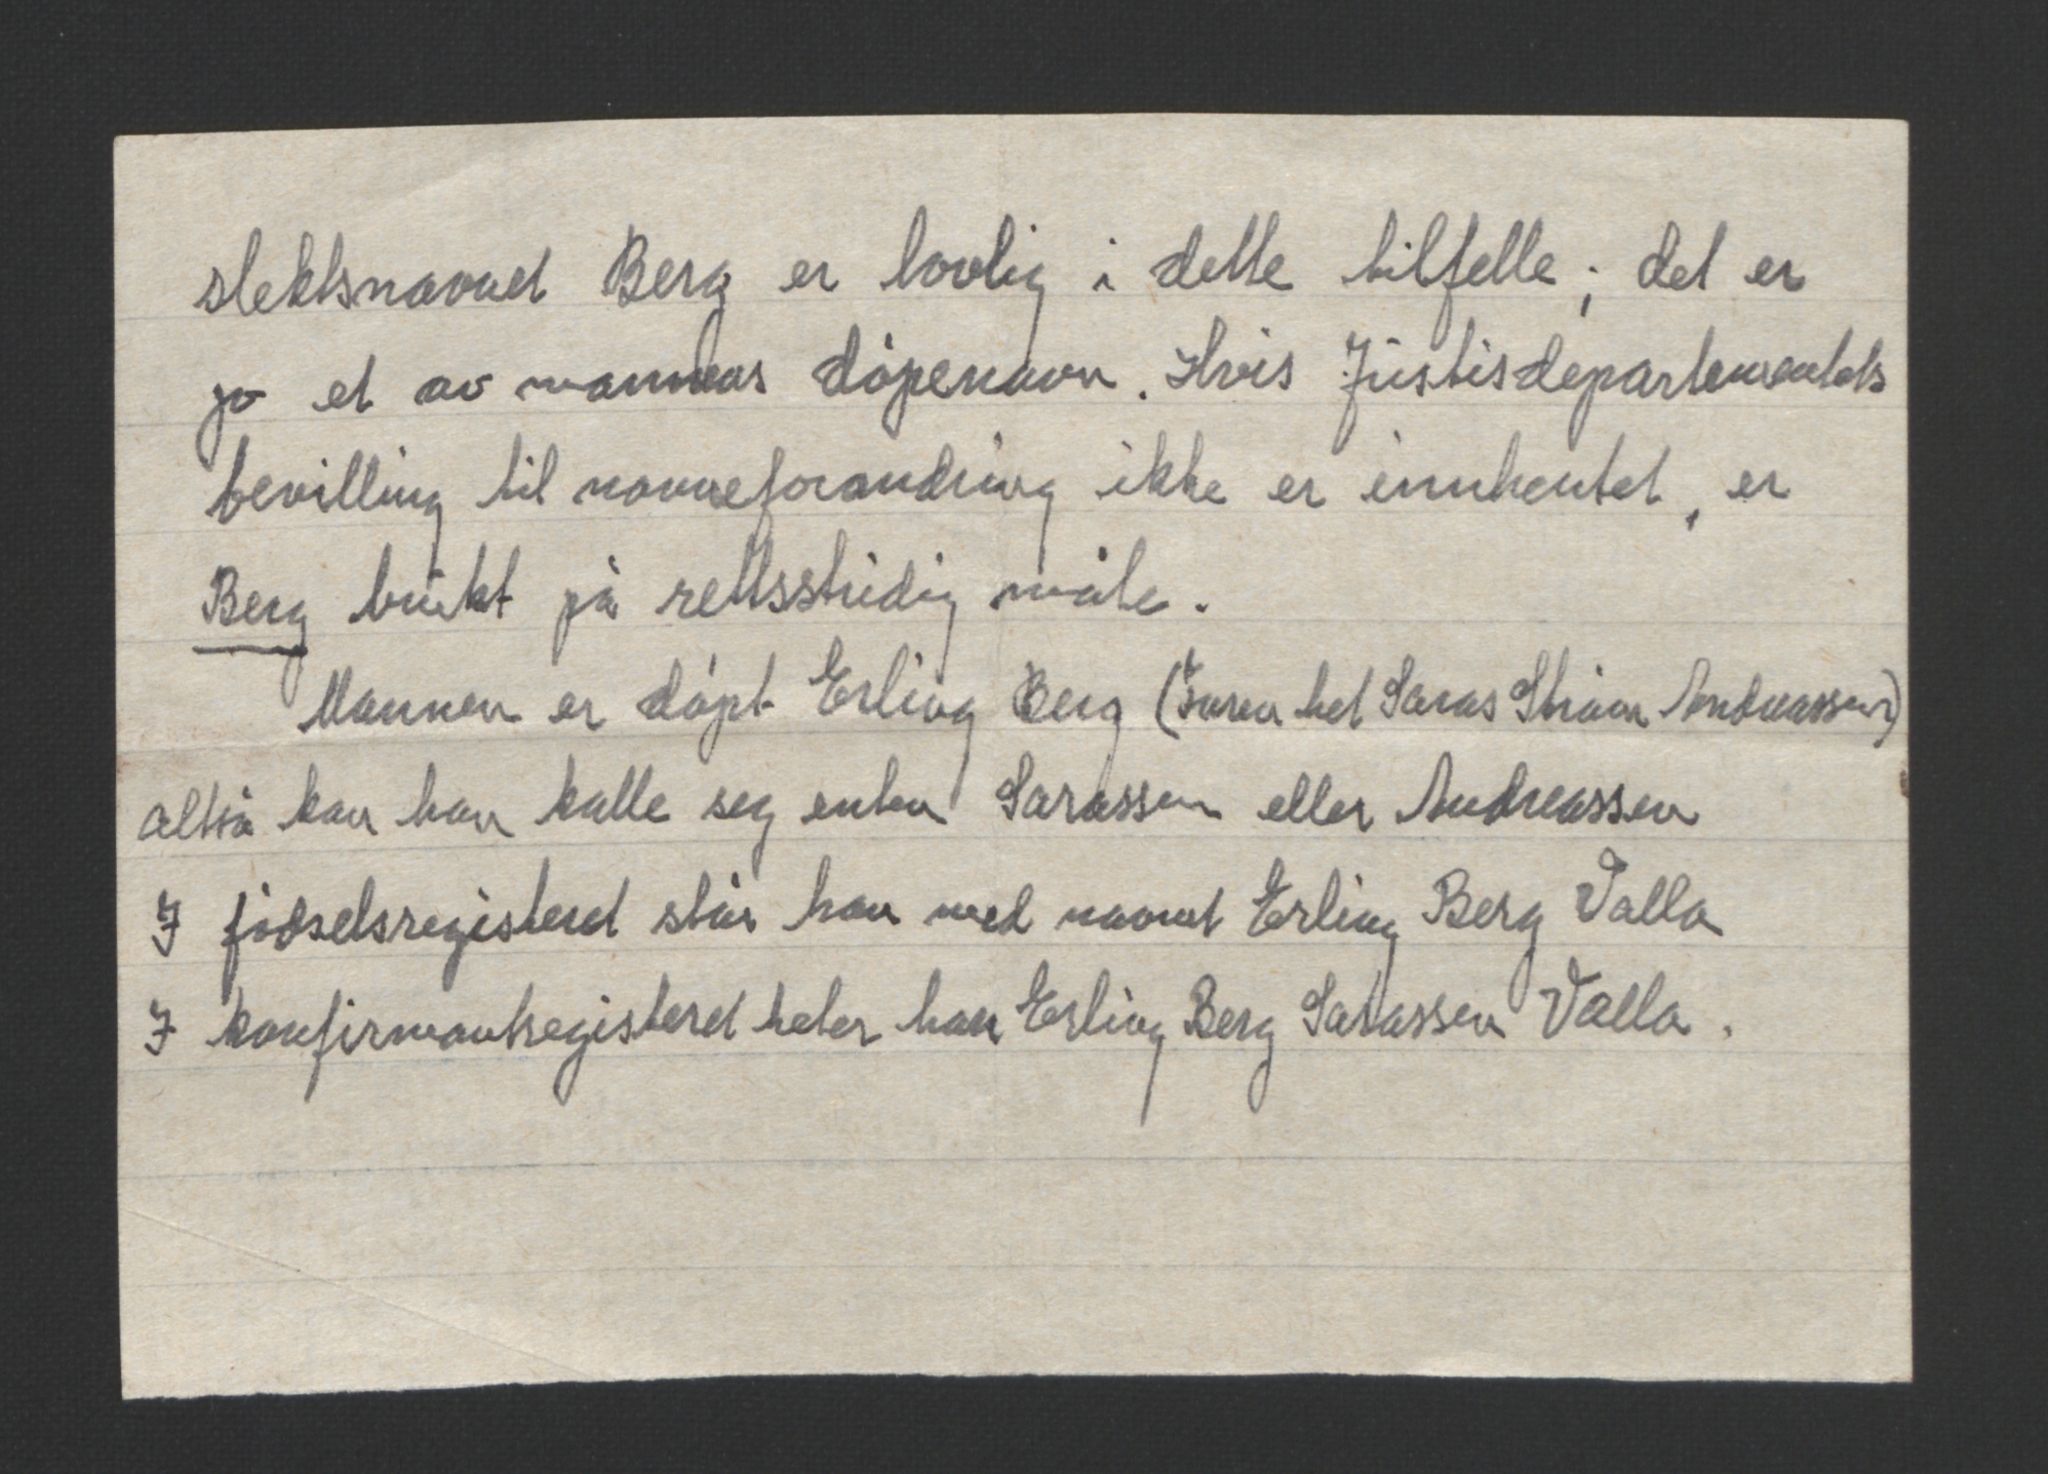 slektsnavnet Berg er lovlig i dette tilfelle; det er
jo et av mannens döpenavn. Hvis Justisdepartementets
bevilling til navneforandring ikke er innhentet, er
Berg brukt på rettsstridig måte.
Mannen er döpt Erling Berg (Faren het Saras Andreassen)
altså kan han kalle seg enten Sarassen eller Andreassen
I födselsregisteret står han med navnet Erling Berg Valla
I konfirmantregisteret heter han Erling Berg Sarassen Valla.